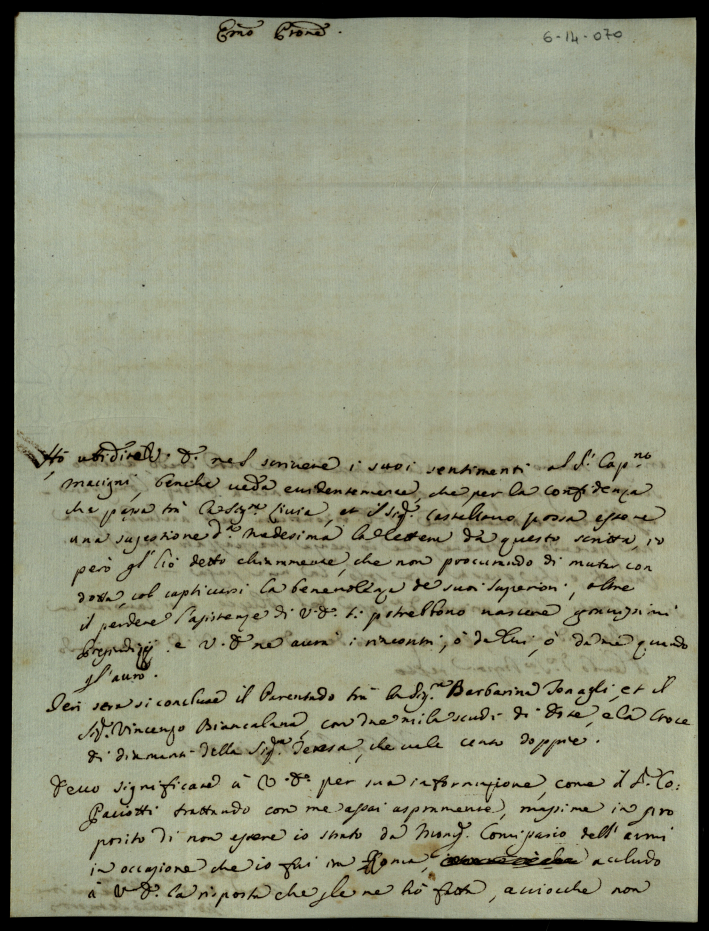 Emo Prone.
6-14-070
Hò ubidire V. Sa. nel scrivere i suoi sentimenti al Sr. Capno.
Macigni, benche veda evidentemente, che per la confidenza
che passa trà la Sigra. Livia, et il Sigr. Castellano possa essere
una sugestione da. medesima la lettera dà questo scritta, io
però gl'hò detto chiaramente, che non procurando di mutar con
dotta, col captivarsi la benevolenza de suoi superiori, oltre
il perdere l'assistenze di V. Sa. li potrebbono nascere gravissimi
pregiudizij e V. Sa. ne avrà i rincontri, ò da lui, ò da me quando
gl'avrò.
Ieri sera si concluse il Parentado trà la Sigra. Barbarina Tonagli, et il
Sigr. Vincenzo Biancalana, con due mila scudi di dote, e la Croce
di diamanti della Sigra. Teresa, che vale cento doppie.
Devo significare à V. Sa. per sua informazione, come il Sr. Co:
Paciotti trattando con me assai aspramente, massime in pro
posito di non essere io stato da Monsr. Comissario dell'armi
in occasione che io fui in Roma, accludo
à V. Sa. la risposta che gle ne hò fatta, acciocche non